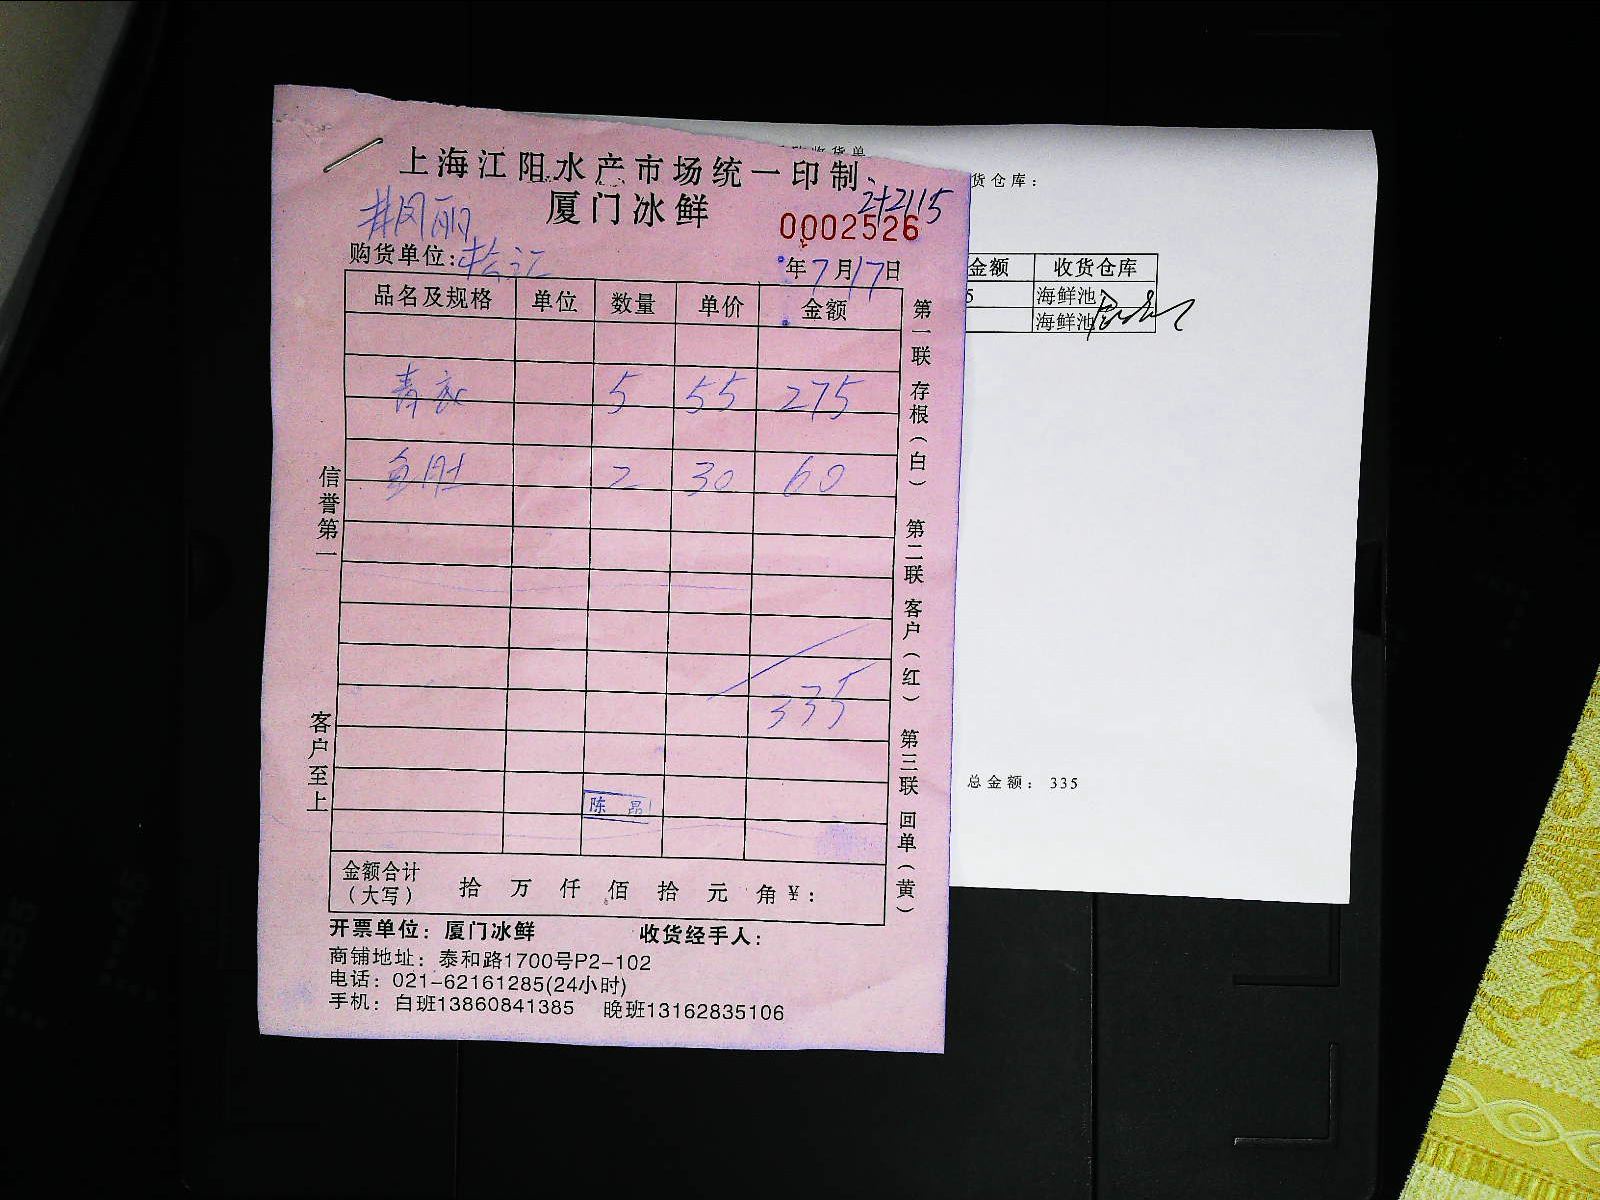 上海江阳水产市场统一印制
厦门冰鲜
2+2115
0002526
井冈丽
购货单位:松江
年7月17日
品名及规格 单位 数量 单价 金额
青衣 5 55 275
鱼肚 2 30 60
335
陈 昂
金额合计
(大写) 拾 万 仟 佰 拾 元 角 ¥:
开票单位: 厦门冰鲜 收货经手人:
商铺地址: 泰和路1700号P2-102
电话: 021-62161285(24小时)
手机: 白班13860841385 晚班13162835106
信誉第一
客户至上
第一联 存根(白) 第二联 客户(红) 第三联 回单(黄)
收货单
货仓库:
金额 收货仓库
5 海鲜池
海鲜池
总金额: 335